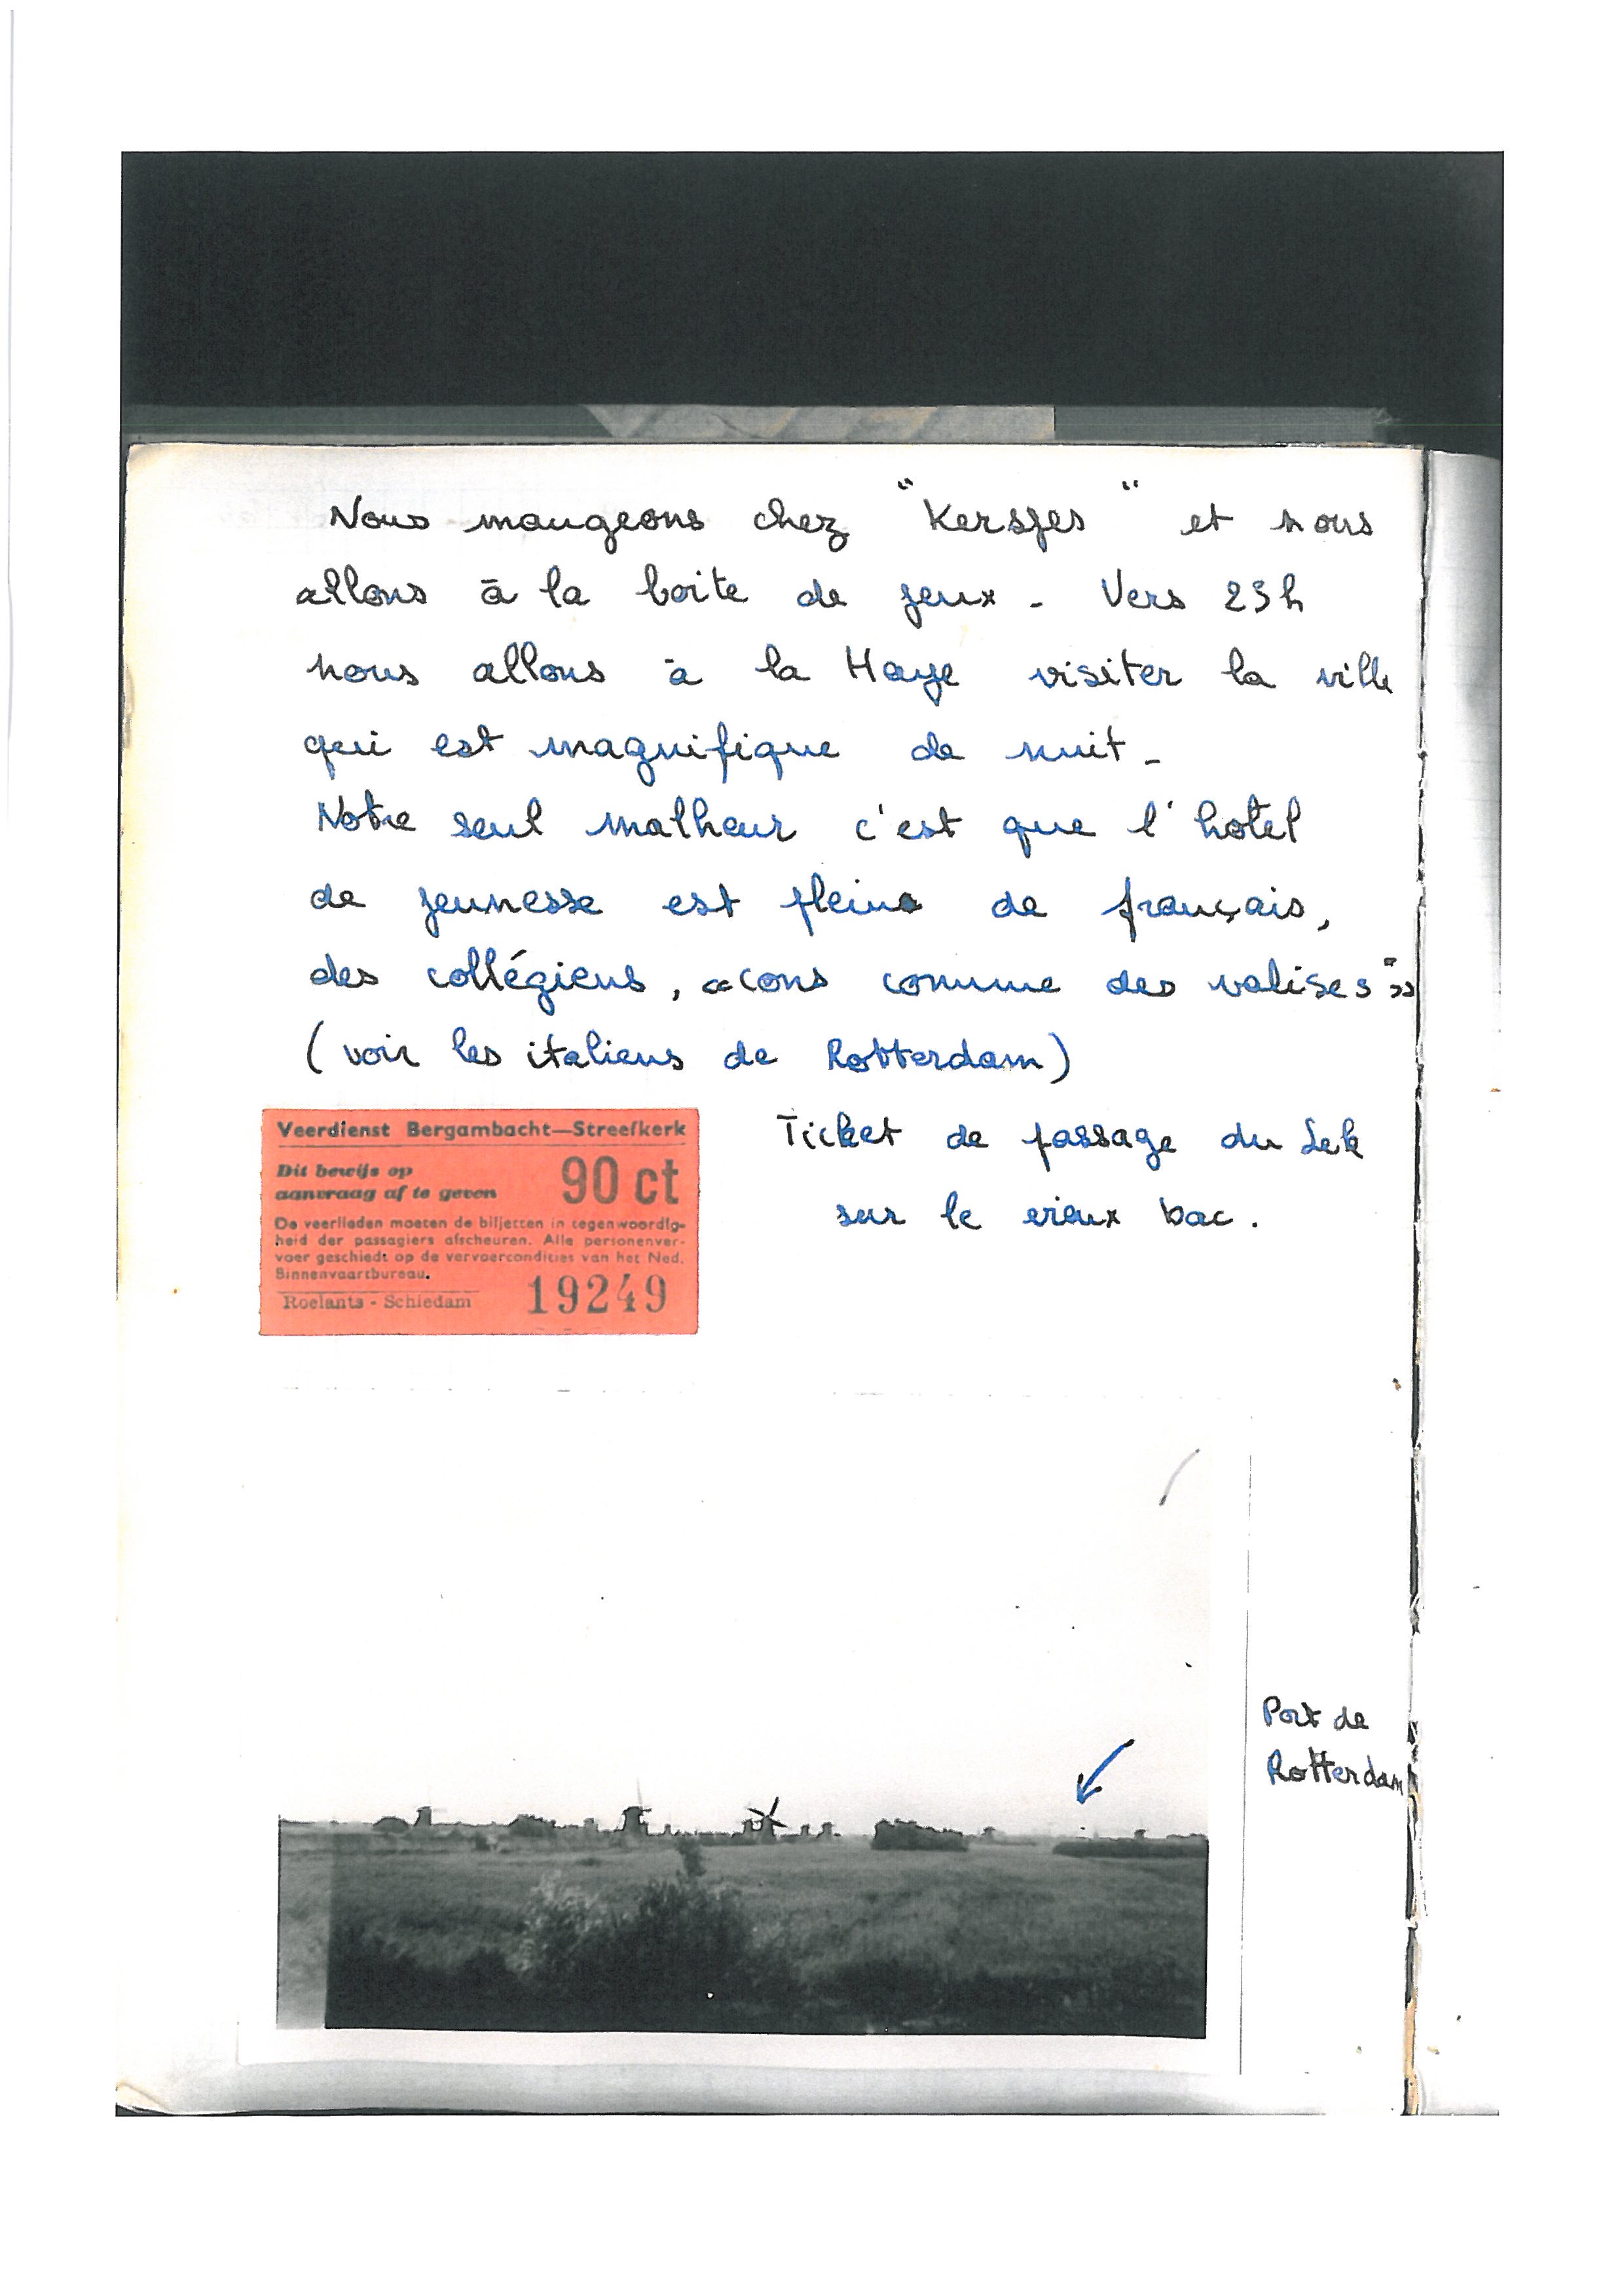 Nous mangeons chez "Kersjes" et nous
allons à la boite de jeux - Vers 23h
nous allons à la Haye visiter la ville
qui est magnifique de nuit -
Notre seul malheur c'est que l'hotel
de jeunesse est plein de français,
des collégiens, «cons comme des valises»
(voir les italiens de Rotterdam)
Ticket de passage du Lek
sur le vieux bac.
Veerdienst Bergambacht—Streefkerk
Dit bewijs op
aanvraag af te geven
90 ct
De veerlieden moeten de biljetten in tegenwoordig-
heid der passagiers afscheuren. Alle personenver-
voer geschiedt op de vervoercondities van het Ned.
Binnenvaartbureau.
Roelants - Schiedam
19249
Port de
Rotterdam